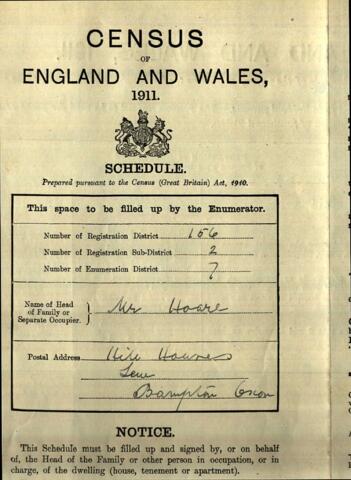 CENSUS
OF
ENGLAND AND WALES,
1911.
SCHEDULE.
Prepared pursuant to the Census (Great Britain) Act, 1910.
This space to be filled up by the Enumerator.
Number of Registration District 156
Number of Registration Sub-District 2
Number of Enumeration District 7
Name of Head of Family or Separate Occupier. } Mr Hoare
Postal Address
Lew
Bampton Oxon
NOTICE.
This Schedule must be filled up and signed by, or on behalf
of, the Head of the Family or other person in occupation, or in
charge, of the dwelling (house, tenement or apartment).